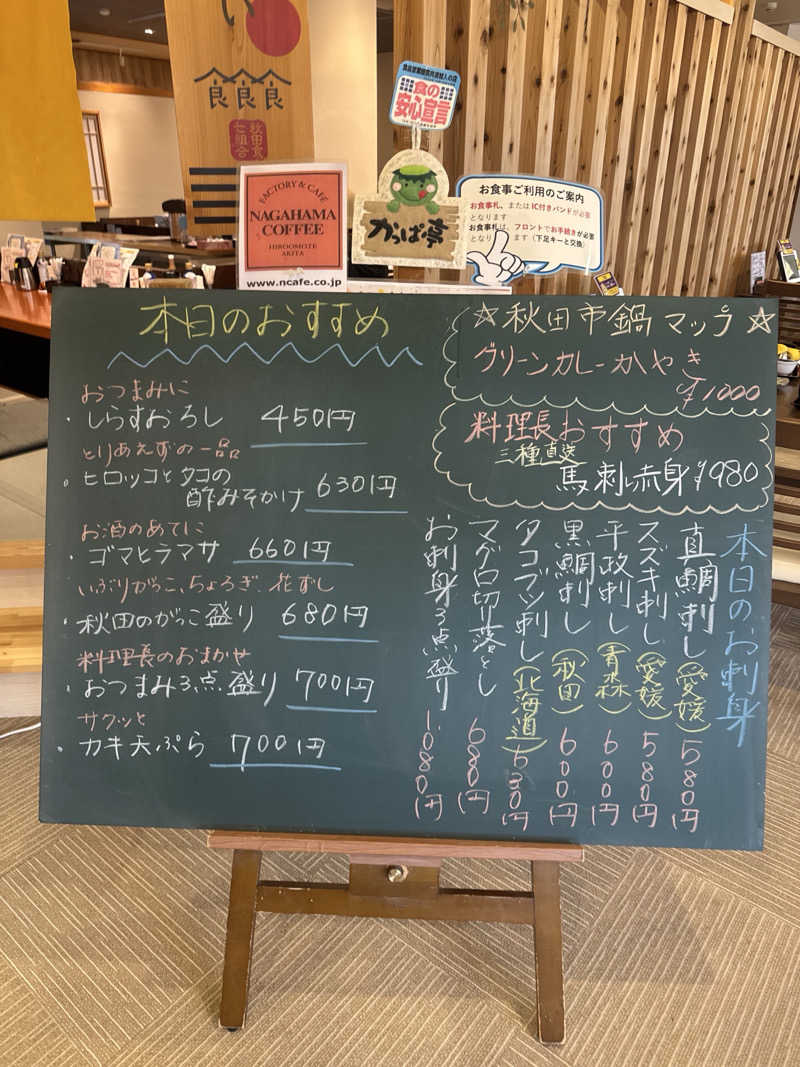 い
良食食
秋田食
七組合
食の
安心宣言
FACTORY & CAFE
NAGAHAMA
COFFEE
HIROOMOTE
AKITA
www.ncafe.co.jp
かっぱ亭
お食事ご利用のご案内
お食事札、またはIC付きバンドが必要
となります
お食事札は、フロントでお手続きが必要
となります(下足キーと交換)
本日のおすすめ
おつまみに
・しらすおろし 450円
とりあえずの一品
・ヒロッコとタコの
酢みそかけ 630円
お酒のあてに
・ゴマヒラマサ 660円
いぶりがっこ、ちょろぎ、花ずし
・秋田のがっこ盛り 680円
料理長のおまかせ
・おつまみ3点盛り 700円
サクッと
・カキ天ぷら 700円
☆秋田市鍋マップ☆
グリーンカレーかやき
¥1000
料理長おすすめ
三種直送
馬刺し赤身¥980
本日のお刺身
真鯛刺し(愛媛)580円
スズキ刺し(愛媛)580円
平政刺し(青森)600円
黒鯛刺し(秋田)600円
タコブツ刺し(北海道)530円
マグロ切り落とし 680円
お刺身3点盛り 1080円